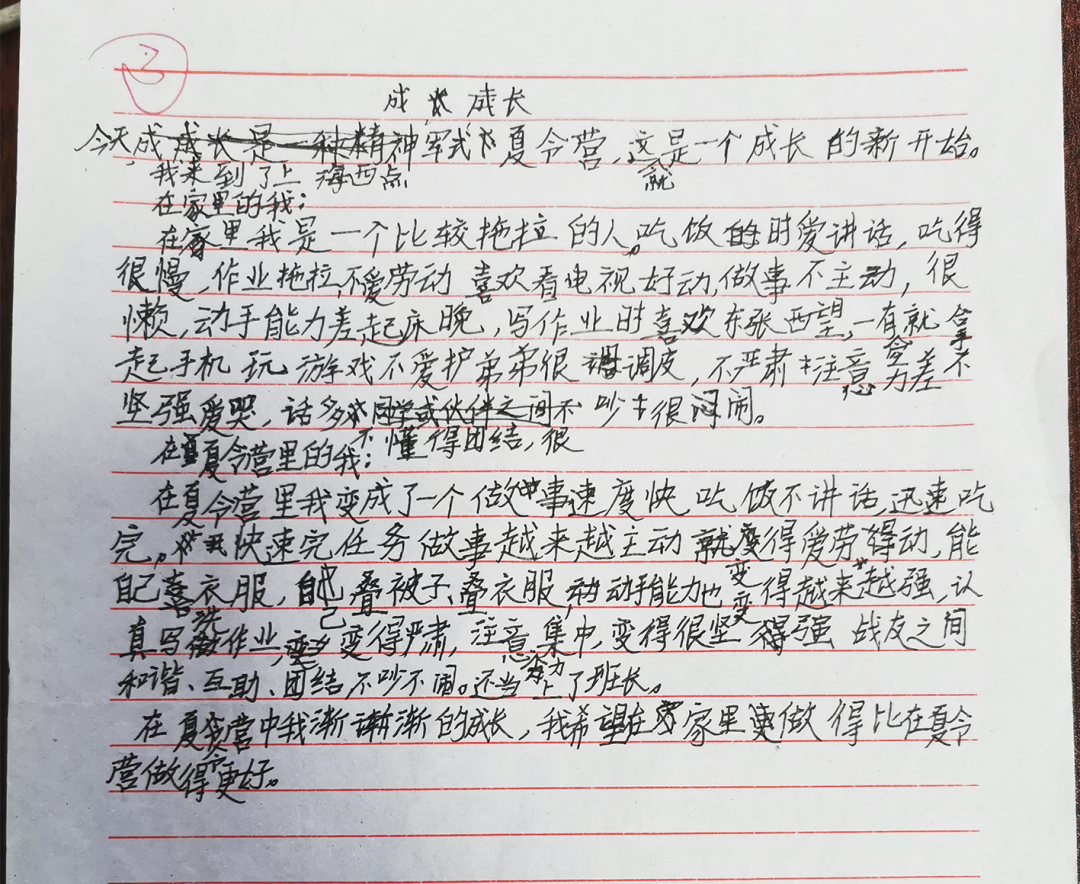 3
成长
今天,我来到了上海西点军式夏令营,这就是一个成长的新开始。
在家里的我:
在家里我是一个比较拖拉的人。吃饭的时爱讲话,吃得
很慢,作业拖拉,不爱劳动 喜欢看电视 好动,做事不主动,很
懒,动手能力差,起床晚,写作业时喜欢东张西望,一有就拿
起手机玩游戏不爱护弟弟很调皮,不严肃 注意力差 不
坚强爱哭,话多 不懂得团结,很吵 很闷闹。
在夏令营里的我:
在夏令营里我变成了一个做事速度快 吃饭不讲话 迅速吃
完。快速完任务 做事越来越主动 变得爱劳动,能
自己洗衣服,自己叠被子、叠衣服,动手能力也变得越来越强,认
真写作业,变得严肃,注意力集中,变得很坚强 战友之间
和谐、互助、团结,不吵不闹。还当上了班长。
在夏令营中我渐渐的成长,我希望在家里更做得比在夏令
营做得更好。